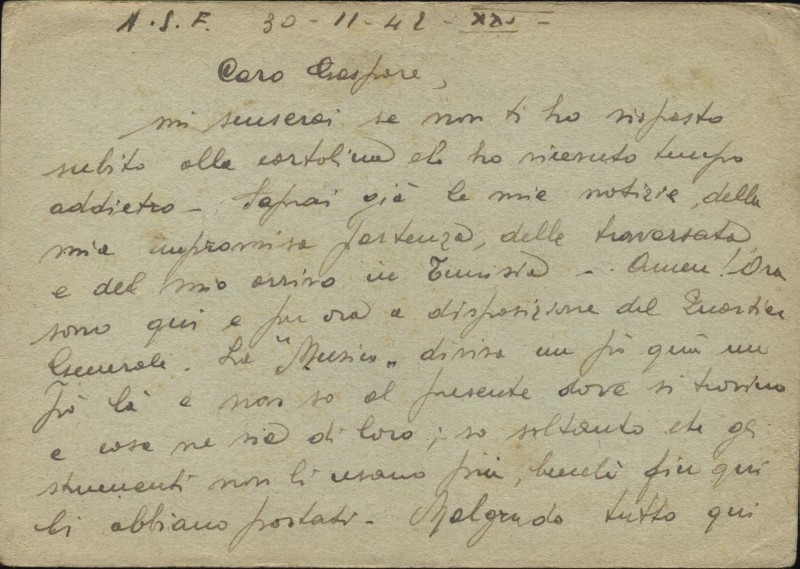 A. S. F. 30 - 11 - 42 - XXI -
Caro Gaspare,
mi scuserai se non ti ho risposto
subito alla cartolina che ho ricevuto tempo
addietro - Saprai già le mie notizie, della
mia improvvisa partenza, della traversata,
e del mio arrivo in Tunisia -. Amen! Ora
sono qui e per ora a disposizione del Quartier
Generale. La "Musica" divisa un pò quà un
pò là e non so al presente dove si trovino
e cosa ne sia di loro; so soltanto che gli
strumenti non li usano più, benchè fin qui
li abbiano portati - Malgrado tutto qui